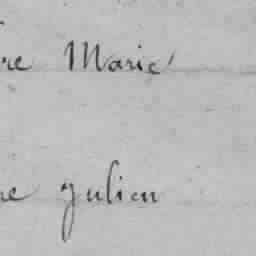 re Marie
re Julien